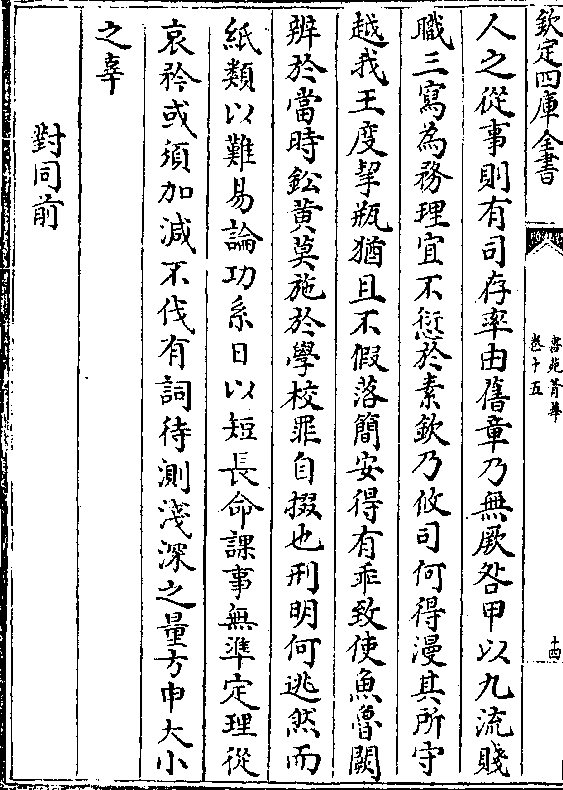 欽定四庫全書
書苑菁華
卷十五
十四
人之從事則有司存率由舊章乃無厥咎甲以九流賤
職三寫為務理宜不愆於素欽乃攸司何得漫其所守
越我王度挈瓶猶且不假落簡安得有乖致使魚魯闕
辨於當時鈆黄莫施於學校罪自掇也刑明何逃然而
紙類以難易論功系日以短長命課事無準定理從
哀矜或須加減不伐有詞待測淺深之量方申大小
之辜
對同前